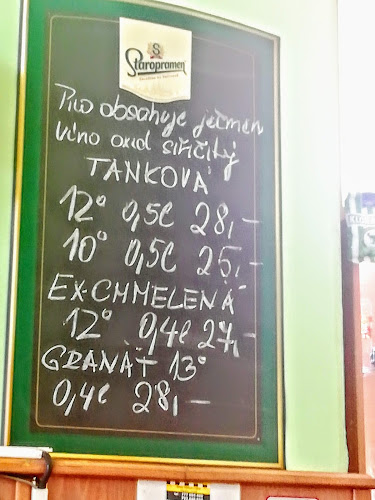 Staropramen
Pivo obsahuje ječmen
víno oxid siřičitý
TANKOVÁ
12° 0,5l 28,-
10° 0,5l 25,-
EX-CHMELENÁ
12° 0,4l 27,-
GRANÁT 13°
0,4l 28,-